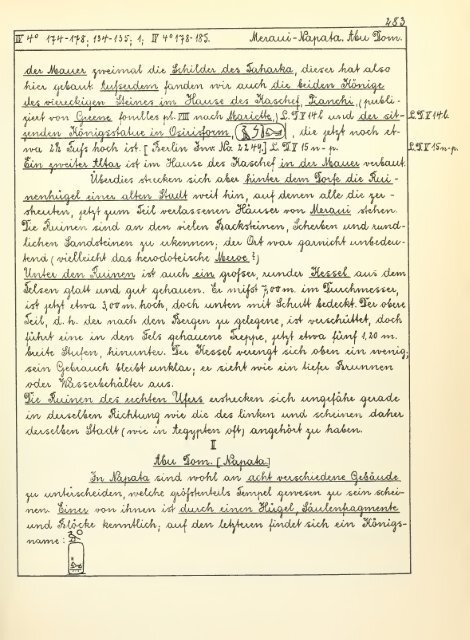 283
IV 4° 174-178; 134-135; 1; IV 4° 178-185.
Meraui-Napata. Abu Dom.
der Mauer zweimal die Schilder des Taharka, dieser hat also
hier gebaut. Außerdem fanden wir auch die beiden Könige
des viereckigen Steines im Hause des Kaschef, Pianchi, (publi-
ziert von Greene fouilles pl. VIII nach Mariette,) L.D.V 14 l und der sit-
zenden Königsstatue in Osirisform, die jetzt noch et-
wa 2½ Fuß hoch ist. [Berlin Inv. No. 2249.] L.D.V 15 n-p.
Ein zweiter Altar ist im Hause des Kaschef in der Mauer verbaut.
Überdies strecken sich aber hinter dem Dorfe die Rui-
nenhügel einer alten Stadt weit hin, auf denen alle die zer-
streuten, jetzt zum Teil verlassenen Häuser von Meraui stehen.
Die Ruinen sind an den vielen Backsteinen, Scherben und rund-
lichen Sandsteinen zu erkennen; der Ort war garnicht unbedeu-
tend (vielleicht das herodoteische Meroe?)
Unter den Ruinen ist auch ein großer, runder Kessel aus dem
Felsen glatt und gut gehauen. Er mißt 7,00 m. im Durchmesser,
ist jetzt etwa 3,00 m. hoch, doch unten mit Schutt bedeckt. Der obere
Teil, d. h. der nach den Bergen zu gelegene, ist verschüttet, doch
führt eine in den Fels gehauene Treppe, jetzt etwa fünf 1,20 m.
breite Stufen, hinunter. Der Kessel verengt sich oben ein wenig;
sein Gebrauch bleibt unklar; er sieht wie ein tiefer Brunnen
oder Wasserbehälter aus.
Die Ruinen des rechten Ufers erstrecken sich ungefähr gerade
in derselben Richtung wie die des linken und scheinen daher
derselben Stadt (wie in Aegypten oft) angehört zu haben.
II
Abu Dom. [Napata]
In Napata sind wohl an acht verschiedene Gebäude
zu unterscheiden, welche größtenteils Tempel gewesen zu sein schei-
nen. Einer von ihnen ist durch einen Hügel, Säulenfragmente
und Blöcke kenntlich; auf den letzteren findet sich ein Königs-
name:
L.D.V 14 l.
L.D.V 15 n-p.